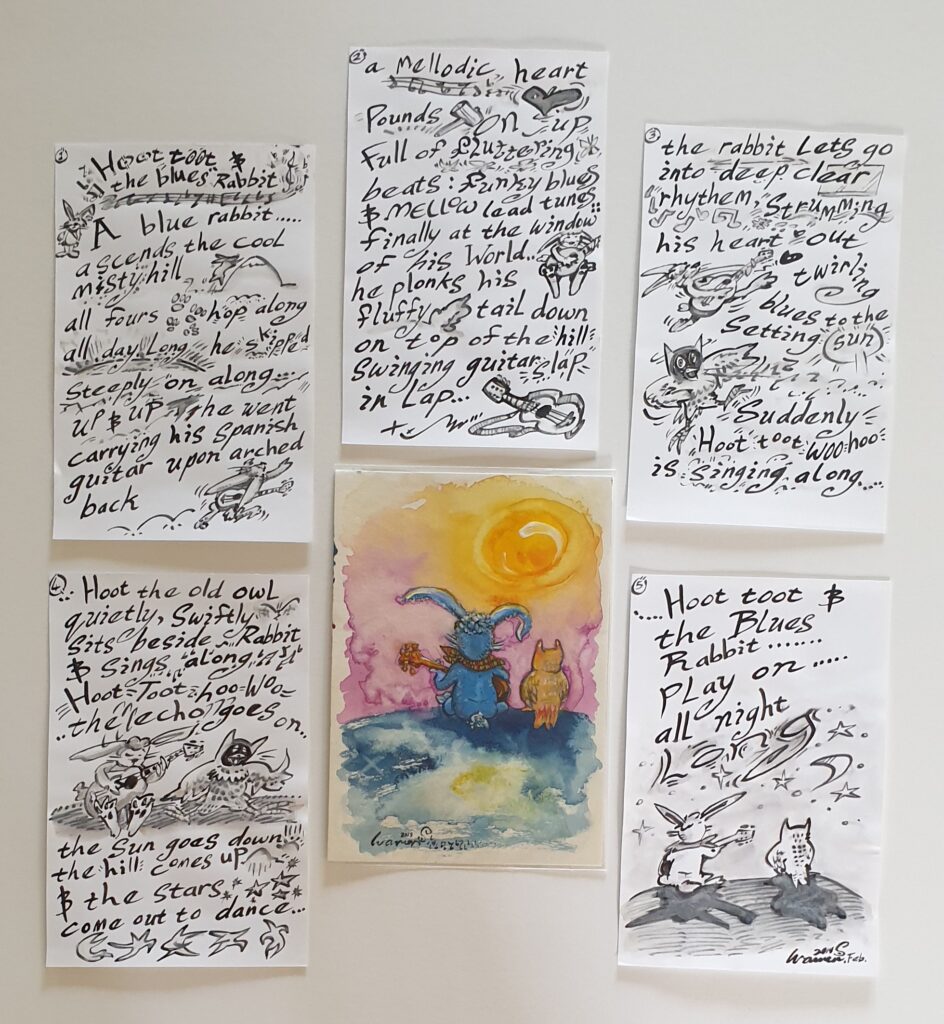 1
Hoot toot &
the blues Rabbit
A blue rabbit.....
ascends the cool
misty hill
all fours hop along
all day Long he skipped
Steeply on along...
up & up he went
carrying his Spanish
guitar upon arched
back
2
a mellodic heart
Pounds on up
Full of fluttering
beats: Funky blues
& mellow lead tunes
finally at the window
of his World..
he plonks his
fluffy tail down
on top of the hill
Swinging guitar slap
in Lap...
3
the rabbit Lets go
into deep clear
rhythem, Strumming
his heart out
twirling
blues to the
Setting sun
Suddenly
Hoot toot woo-hoo
is Singing along....
4
Hoot the old owl
quietly, Swiftly
Sits beside Rabbit
& Sings along
Hoot-Toot-hoo-Woo-
..the echo goes on..
the Sun goes down
the hill cones up
& the stars
come out to dance...
2013
Warren S
5
.....Hoot toot &
the Blues
Rabbit......
Play on.....
all night
Long
Warren S
Feb.